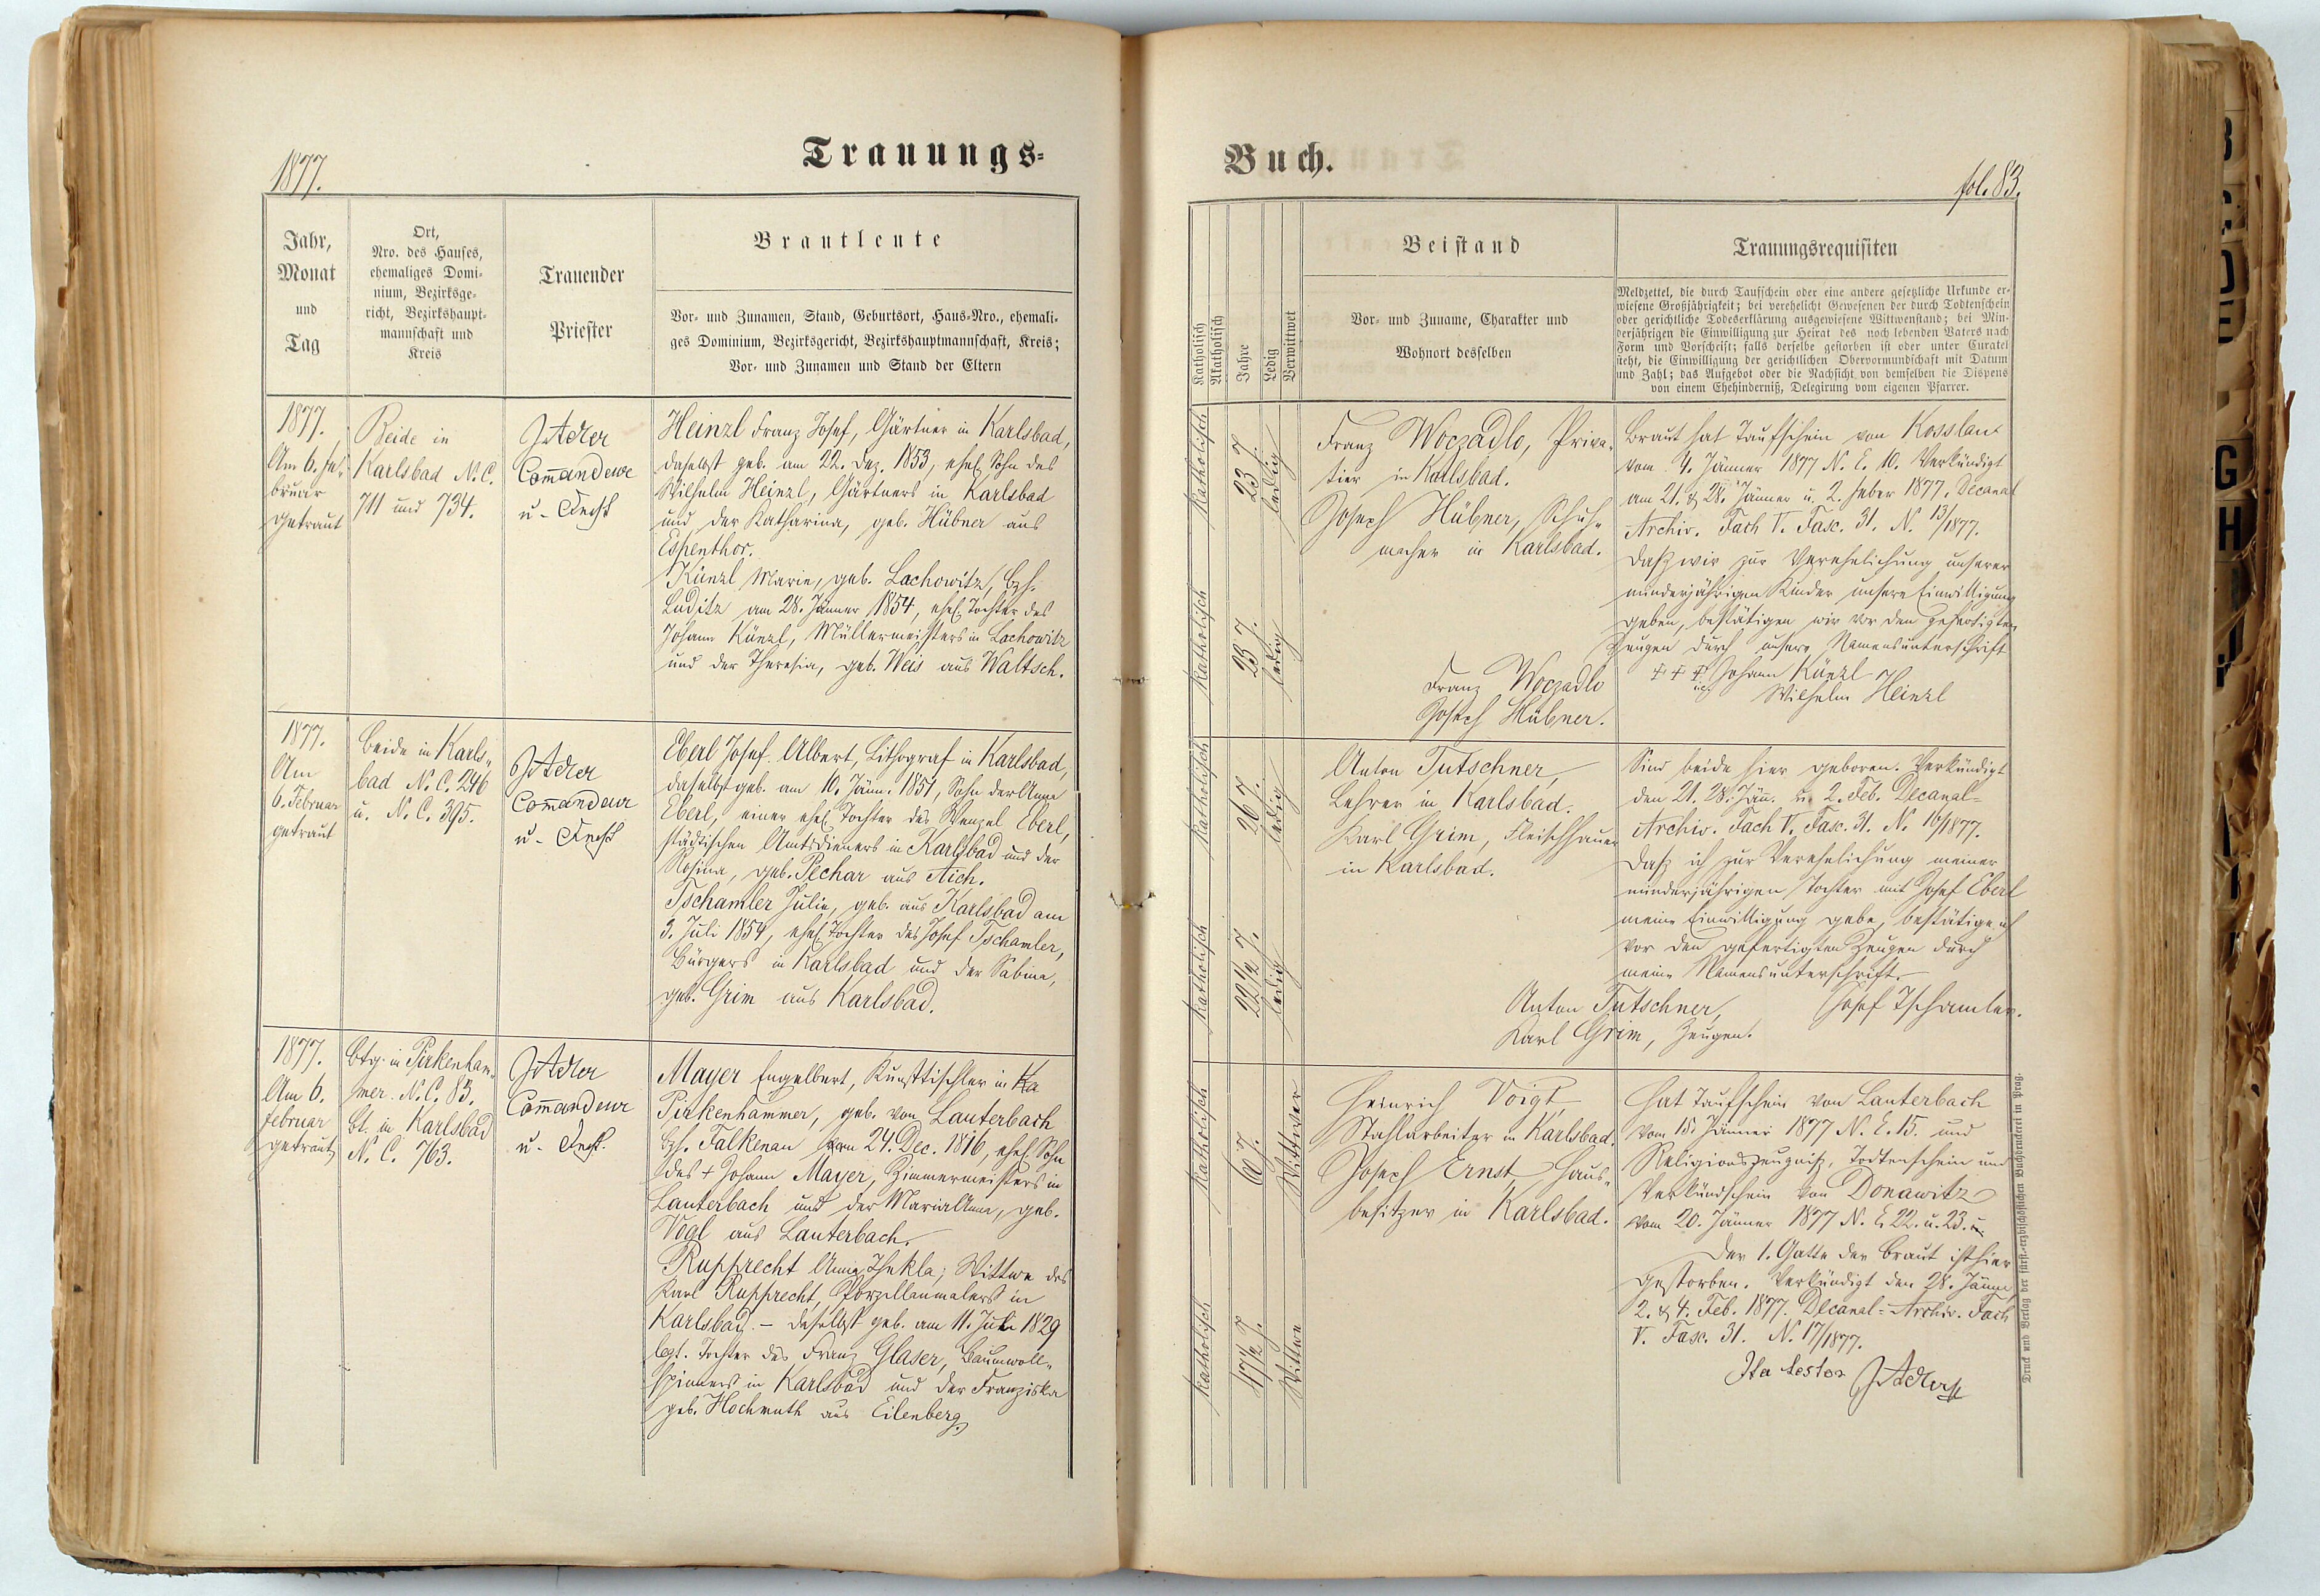 1877.
Trauungs-
Jahr,
Monat
und
Tag
Ort,
Nro. des Hauses,
ehemaliges Domi-
nium, Bezirksge-
richt, Bezirkshaupt-
mannschaft und
Kreis
Trauender
Priester
Brautleute
Vor- und Zunamen, Stand, Geburtsort, Haus-Nro., ehemali-
ges Dominium, Bezirksgericht, Bezirkshauptmannschaft, Kreis;
Vor- und Zunamen und Stand der Eltern
1877.
Am 6. Fe-
bruar
getraut
Beide in
Karlsbad N.C.
711 und 734.
JAdler
Com̅andeur
u.
Heinzl Franz Josef, Gärtner in Karlsbad,
daselbst geb. am 22. Dez. 1853, ehel. Sohn des
Wilhelm Heinzl, Gärtners in Karlsbad
und der Katharina, geb. Hübner aus
Espenthor.
Künzl Marie, geb. Lachowitz, Bzh.
Luditz am 28. Jänner 1854, ehel. Tochter des
Johann Künzl, Müllermeisters in Lachowitz
und der Theresia, geb. Weis aus Waltsch.
1877.
Am
6. Februar
getraut
Beide in Karls-
bad N.C. 246
u. N.C. 395.
JAdler
Com̅andeur
u.
Eberl Josef Albert, Lithograf in Karlsbad,
daselbst geb. am 10. Jänn. 1851, Sohn der Anna
Eberl, einer ehel. Tochter des Wenzel Eberl,
städtischen Amtsdieners in Karlsbad und der
Rosina, geb. Pechar aus Aich.
Tschamler Julie, geb. aus Karlsbad am
3. Juli 1854, ehel. Tochter des Josef Tschamler,
Bürgers in Karlsbad und der Sabina,
geb. Grim aus Karlsbad.
1877.
Am 6.
Februar
getraut
Btg. in Pirkenham-
mer N.C. 83.
Bt. in Karlsbad
N.C. 763.
JAdler
Com̅andeur
u.
Mayer Engelbert, Kunsttischler in Ka
Pirkenhammer, geb. von Lauterbach
Bzh. Falkenau vom 24. Dec. 1816, ehel. Sohn
des + Johann Mayer, Zimmermeisters in
Lauterbach und der Maria Anna, geb.
Vogl aus Lauterbach.
Rupprecht Anna Thekla; Wittwe des
Karl Rupprecht, Porzellanmalers in
Karlsbad. - daselbst geb. am 11. Juli 1829
Tochter des Franz Glaser, Baumwoll-
spinners in Karlsbad und der Franziska
geb. Hochmuth aus Eilenberg.
Buch.
fol. 83.
Katholisch
Akatholisch
Jahre
Ledig
Verwittwet
Beistand
Vor- und Zuname, Charakter und
Wohnort desselben
Trauungsrequisiten
Meldzettel, die durch Taufschein oder eine andere gesetzliche Urkunde er-
wiesene Großjährigkeit; bei verehelicht Gewesenen der durch Todtenschein
oder gerichtliche Todeserklärung ausgewiesene Wittwenstand; bei Min-
derjährigen die Einwilligung zur Heirat des noch lebenden Vaters nach
Form und Vorschrift; falls derselbe gestorben ist oder unter Curatel
steht, die Einwilligung der gerichtlichen Obervormundschaft mit Datum
und Zahl; das Aufgebot oder die Nachsicht von demselben die Dispens
von einem Ehehinderniß, Delegirung vom eigenen Pfarrer.
Katholisch
23 J.
ledig
Katholisch
23 J.
ledig
Franz Woczadlo, Priva-
tier in Karlsbad.
Joseph Hübner, Schuh-
macher in Karlsbad.
Franz Woczadlo
Joseph Hübner.
Braut hat Taufschein von Kosslau
vom 4. Jänner 1877 N.E. 10. Verkündigt
am 21. & 28. Jänner u. 2. Feber 1877. Decanal
Archiv. Fach V. Fasc. 31. N. 13/1877.
Daß wir zur Verehelichung unserer
minderjährigen Kinder unsere Einwilligung
geben, bestätigen wir vor den gefertigten
Zeugen durch unsere Namensunterschrift
+ + + Johann Künzl
Wilhelm Heinzl
Katholisch
26 J.
ledig
Katholisch
22 1/2 J.
ledig
Anton Tutschner,
Lehrer in Karlsbad.
Karl Grim, Fleischhauer
in Karlsbad.
Sind beide hier geboren. Verkündigt
den 21. 28. Jän. u. 2. Feb. Decanal-
Archiv. Fach V. Fasc. 31. N. 16/1877.
Daß ich zur Verehelichung meiner
minderjährigen Tochter mit Josef Eberl
meine Einwilligung gebe, bestätige ich
vor den gefertigten Zeugen durch
meine Namensunterschrift.
Anton Tutschner,
Karl Grim, Zeugen.
Josef Tschamler.
Katholisch
60 J.
Wittwer
Katholisch
47 1/2 J.
Wittwe
Heinrich Voigt,
Stahlarbeiter in Karlsbad.
Joseph Ernst, Haus-
besitzer in Karlsbad.
Hat Taufschein von Lauterbach
vom 18. Jänner 1877 N.E. 15. und
Religionszeugniß, Todtenschein und
Verkündschein von Donawitz
vom 20. Jänner 1877 N.E. 22. u. 23.
Der 1. Gatte der Braut ist hier
gestorben. Verkündigt den 28. Jänner
2. & 4. Feb. 1877. Decanal-Archiv. Fach
V. Fasc. 31. N. 17/1877.
Ita testor JAdler
Druck und Verlag der fürst-erzbischöflichen Buchdruckerei in Prag.